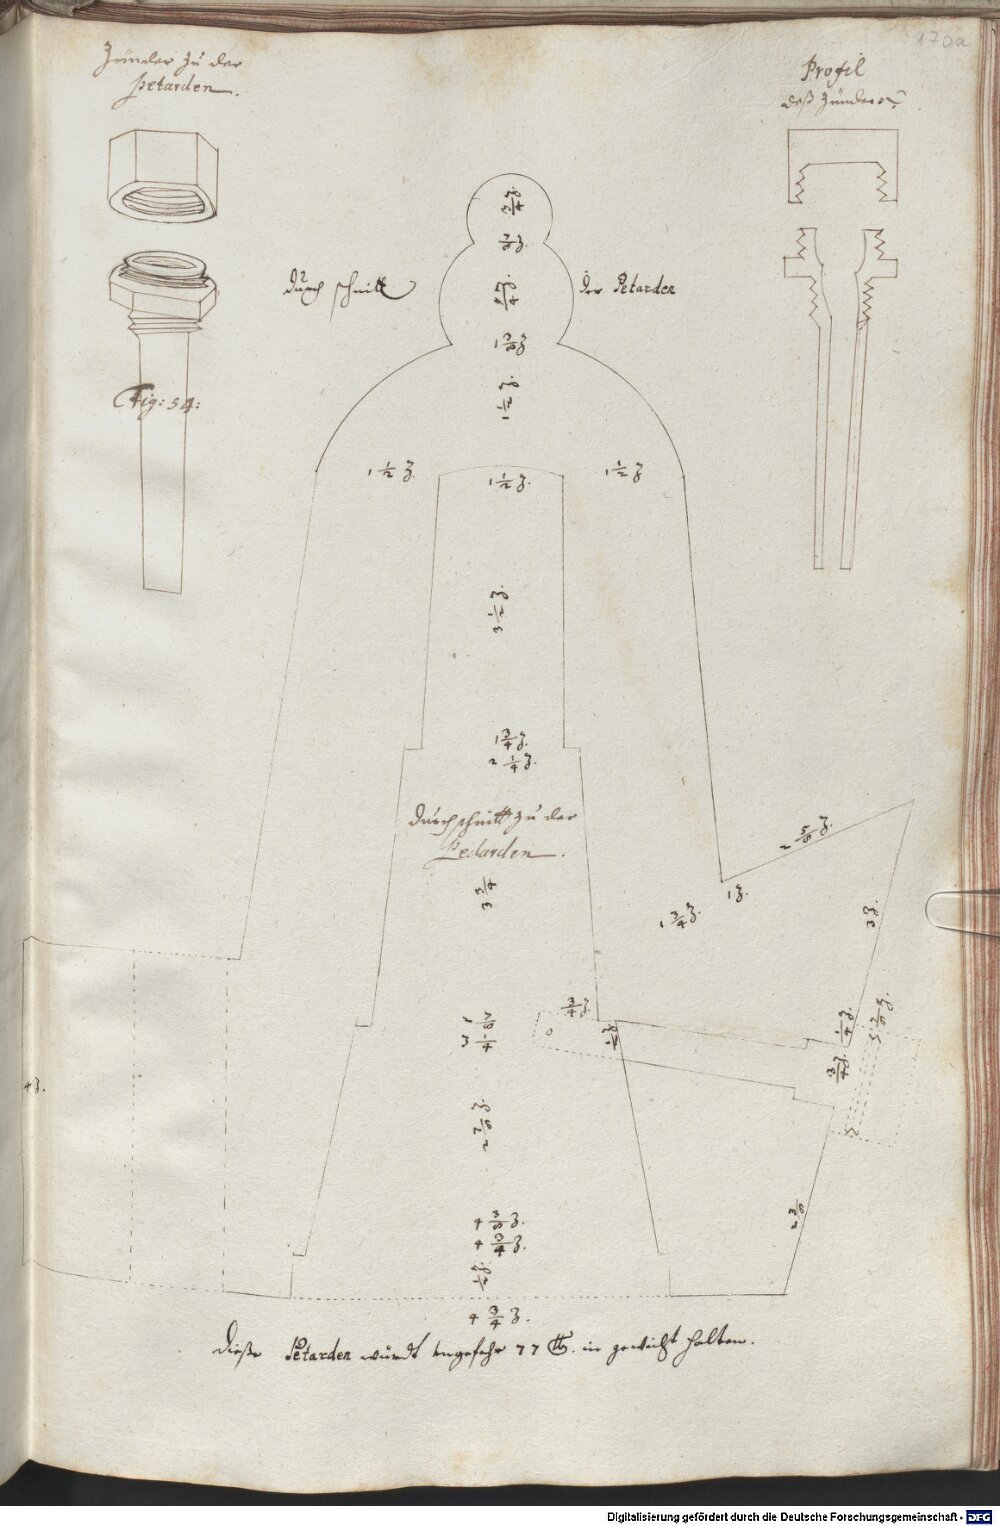 170a
Zünder zu der
petarden.
Profil
deß Zünders
durch schnitt der Petarden
Fig: 54:
3/4 Z.
7/8 Z.
1 3/8 Z
1 1/2 Z.
1 1/2 Z.
1 1/2 Z.
1 1/2 Z
3 1/2 Z.
1 3/4 Z.
2 1/4 Z.
durchschnitt zu der
Pedarden.
3 3/4
2 5/8 Z.
1 Z.
1 3/4 Z.
3 Z.
3/4 Z.
1/4 Z.
3/4 Z.
3 1/4
4 Z.
2 7/8 Z.
2 3/8
4 3/8 Z.
4 3/4 Z.
1/2 Z.
4 3/4 Z.
dieße Petarden würdt ungefehr 77 ℔. in gewicht halten.
Digitalisierung gefördert durch die Deutsche Forschungsgemeinschaft - DFG